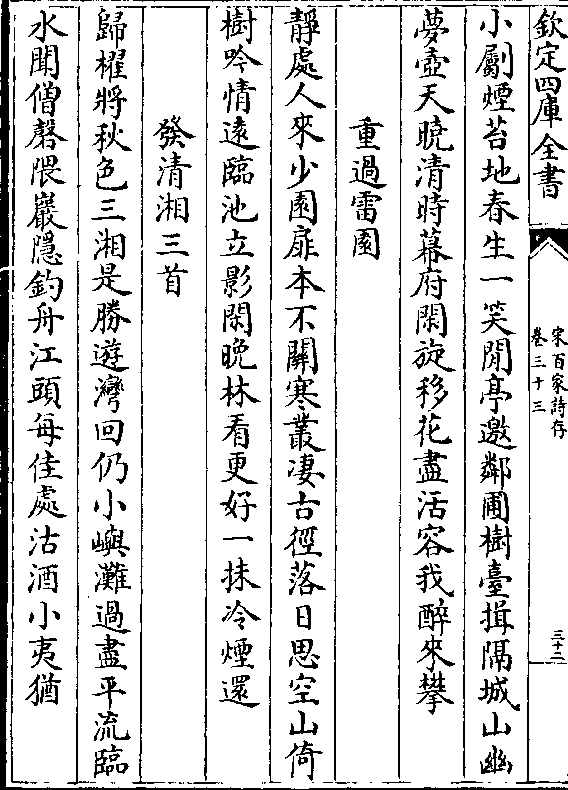 欽定四庫全書
宋百家詩存
卷三十三
三十二
小劚煙苔地春生一笑閒亭邀鄰圃樹臺揖隔城山幽
夢壺天曉清時幕府閑旋移花盡活容我醉來攀
重過雷園
靜處人來少園扉本不關寒叢淒古徑落日思空山倚
樹吟情遠臨池立影閑晚林看更好一抹冷煙還
發清湘三首
歸櫂將秋色三湘是勝遊灣回仍小嶼灘過盡平流臨
水聞僧磬隈巖隱釣舟江頭每佳處沽酒小夷猶